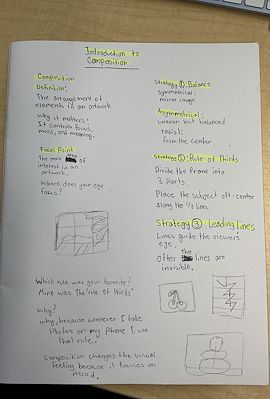 Introduction to
Composition
Composition
Definition:
The arrangement of
elements in an artwork
Why it matters:
It controls focus,
mood, and meaning.
Focal Point
The main of
interest in an
artwork.
Where does your eye
focus?
Which rule was your favorite?
Mine was The "rule of thirds"
Why?
Why, because whenever I take
Photos on my phone I use
that rule.
Composition changes the visual
feeling because it focuses on
mood.
Strategy ①: Balance
Symmetrical:
mirror image
Asymmetrical:
uneven but balanced
radial:
from the center.
Strategy ②: Rule of Thirds
Divide the Frame into
3 Parts.
Place the subject off-center
along the 1/3 lines.
Strategy ③: Leading lines
Lines guide the viewers
eye.
Often the lines are
invisible.